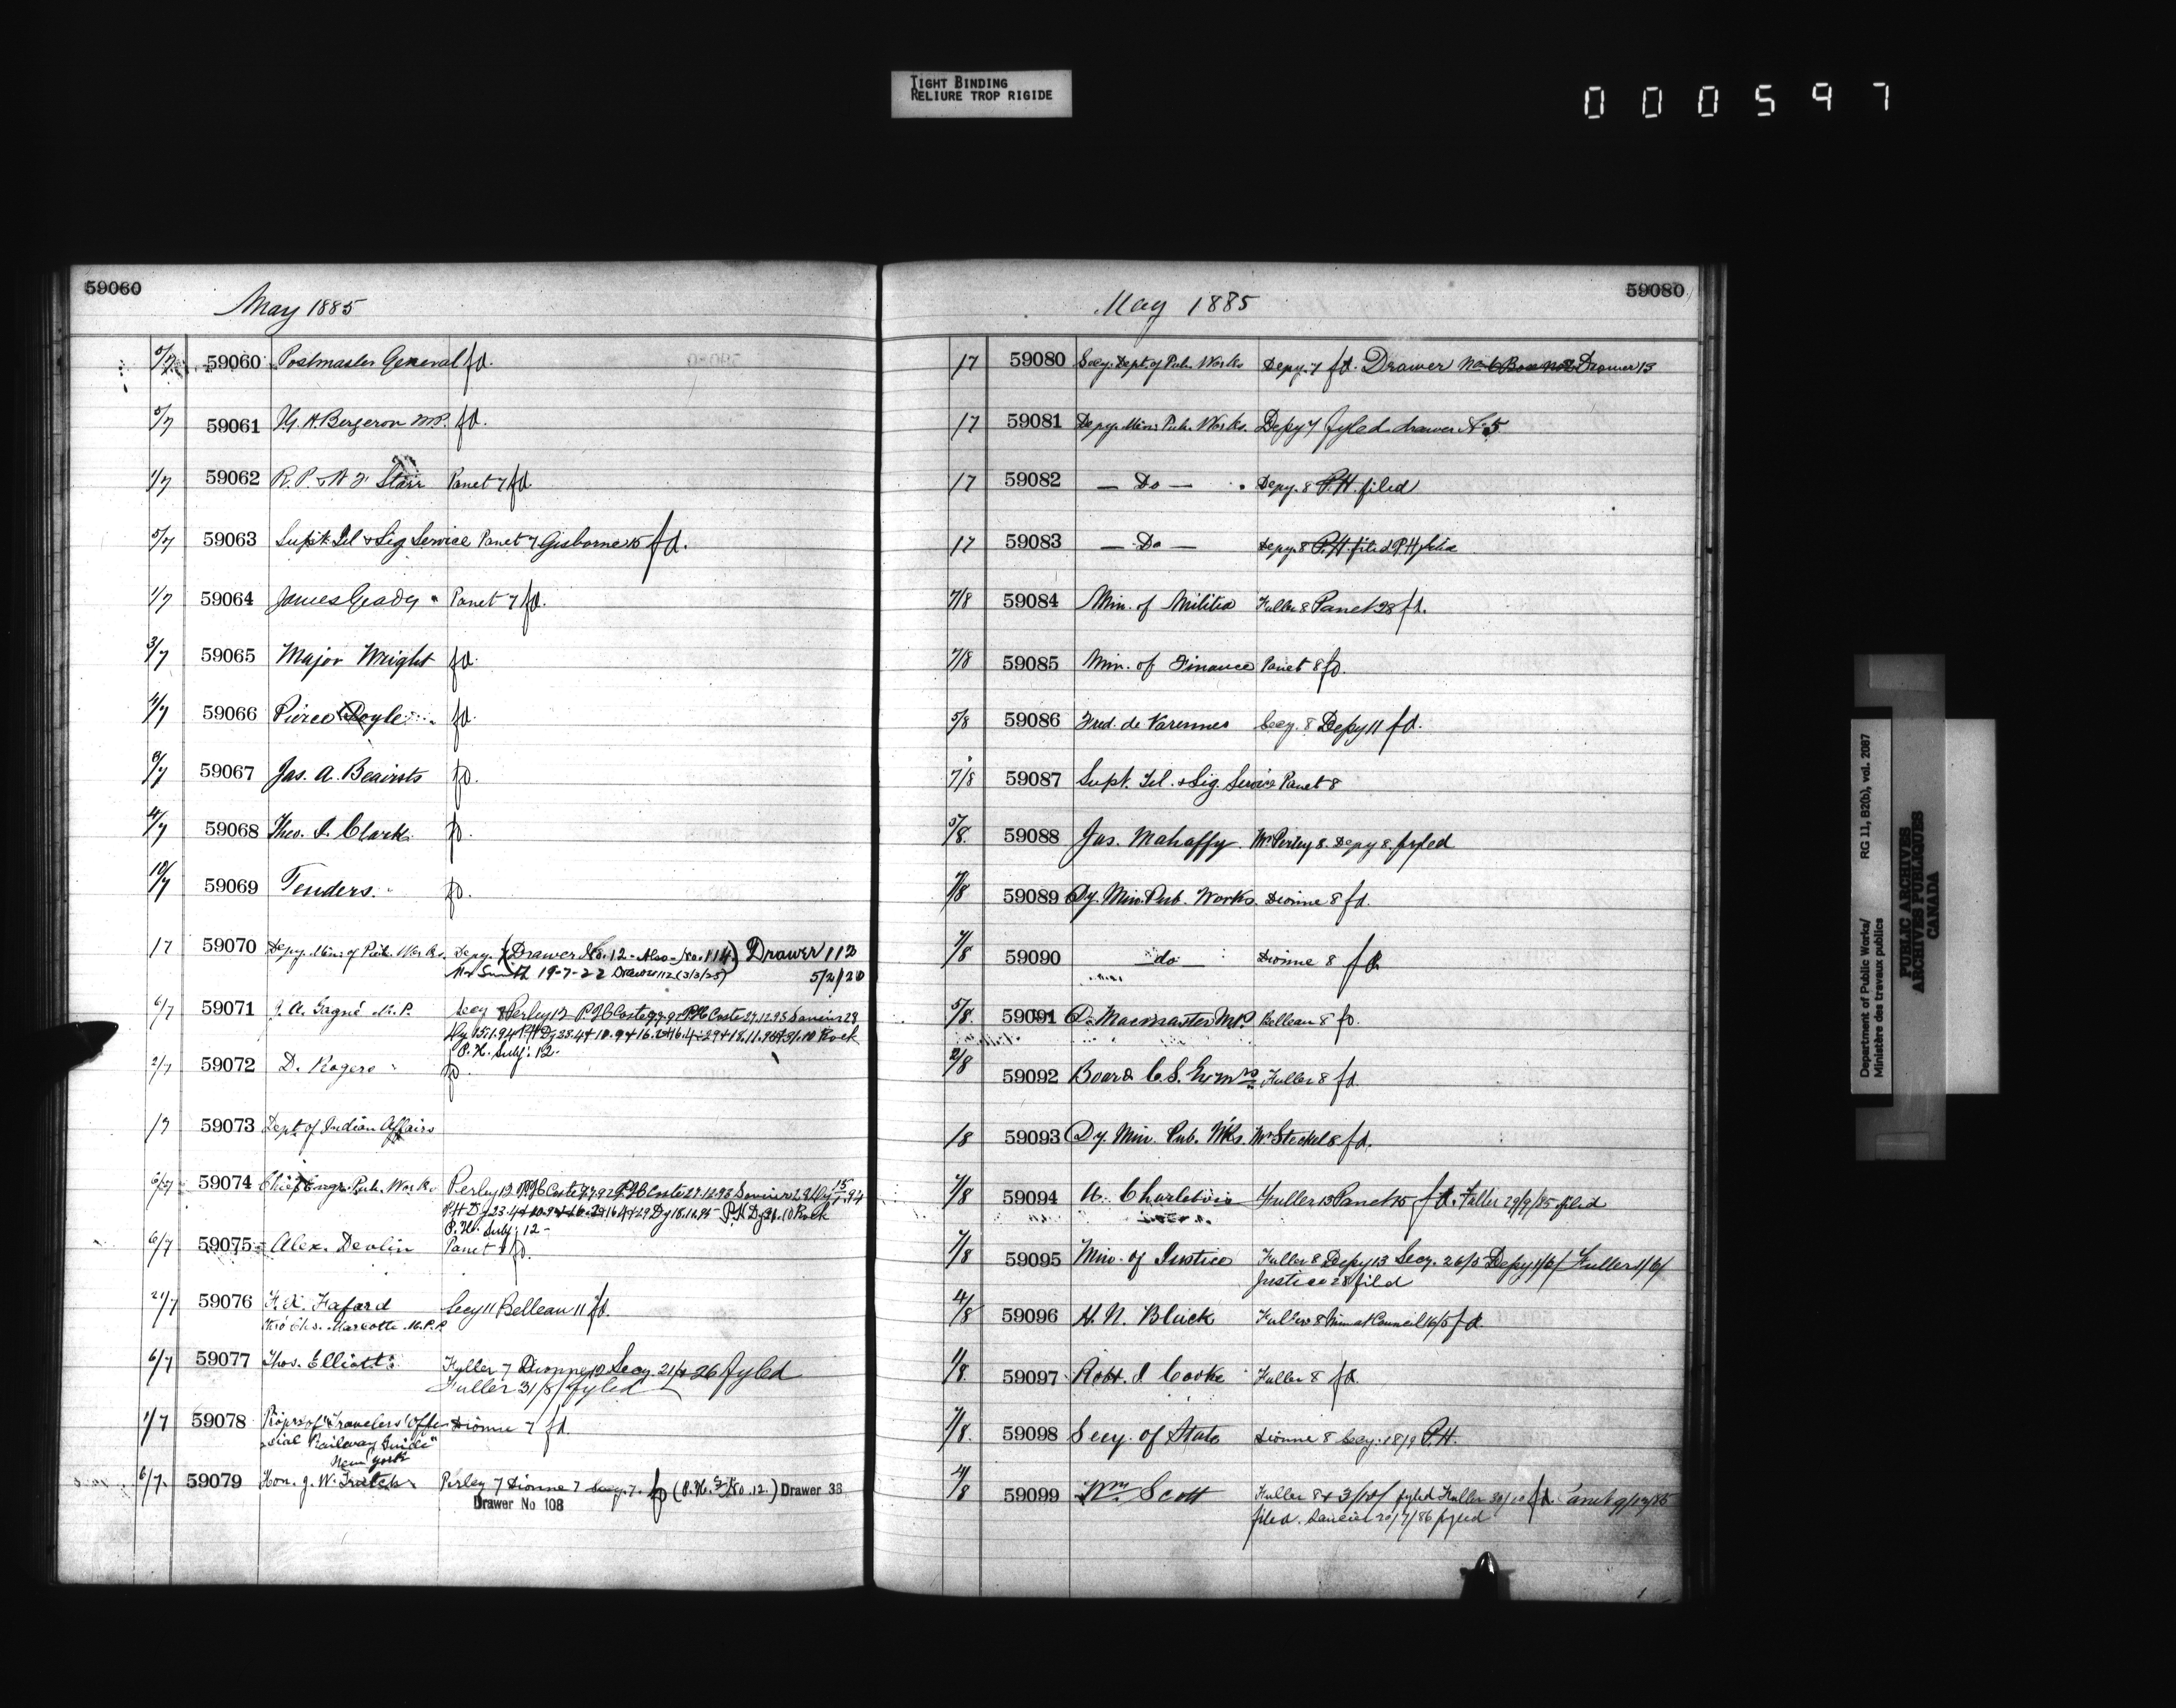 TIGHT BINDING
RELIURE TROP RIGIDE
000597
59060
May 1885
5/7 59060 Postmaster General fd.
5/7 59061 H. Bergeron M.P. fd.
1/7 59062 R. P. & W F Starr Panet 7 fd.
5/7 59063 Supt. Tel & Sig Service Panet 7 Gisborne 15 fd.
1/7 59064 James Panet 7 fd.
3/7 59065 Major Wright fd.
4/7 59066 Pierce Doyle fd.
59067 Jas. A. fd.
4/7 59068 Theo. Clark fd.
59069 Tenders. fd.
17 59070 Depy. Min. of Pub. Works Depy. 7 (Drawer No. 12 - Also - No. 114) Drawer 112
Mr Smith 19-7-22 Drawer 112 (3/3/25) 5/2/20
6/7 59071 Gagné M.P. Secy Perley 12 P.H Coste Coste 27.12.93
Rock
P.H. Subj: 12-
2/7 59072 D. Rogers fd.
17 59073 Dept of Indian Affairs
59074 Chief Engr. Pub. Works Perley 12 Coste Coste 27.12.93
P.H. Dy 23.4 Rock
P.H. Subj: 12-
6/7 59075 Alex. Devlin Panet fd.
59076 Fafard Secy 11 Belleau 11 fd.
Marcotte M.P.P.
6/7 59077 Thos. Elliott Fuller 7 Dionne Secy 26 fyled
Fuller 31/8/ fyled
1/7 59078 Propr. of "Travelers' Offi Dionne 7 fd.
cial Railway Guide"
New York
6/7 59079 Hon. J. W. Trutch Perley 7 Dionne 7 Secy. 7. fd (P.H. No. 12.) Drawer 38
Drawer No 108
59080
May 1885
17 59080 Secy. Dept. of Pub. Works Depy. 7 fd. Drawer Drawer 13
17 59081 Depy. Min. Pub. Works. Depy 7 fyled drawer No 5
17 59082 — Do — Depy. 8 P.H. filed
17 59083 — Do — Depy. 8 P.H. filed P.H
7/8 59084 Min. of Militia Fuller 8 Panet 28 fd.
7/8 59085 Min. of Finance Panet 8 fd.
5/8 59086 Fred. de Varennes Secy. 8 Depy 11 fd.
7/8 59087 Supt. Tel. & Sig. Service Panet 8
5/8 59088 Jas. Mahaffy Mr. Perley 8. Depy 8. fyled
7/8 59089 Dy. Min. Pub. Works. Dionne 8 fd.
7/8 59090 — do — Dionne 8 fd.
5/8 59091 D. Macmaster M.P. Belleau 8 fd.
2/8 59092 Board C.S. Exmrs Fuller 8 fd.
18 59093 Dy. Min. Pub. Wks. Mr. Steckel 8 fd.
7/8 59094 A. Charlebois Fuller 13 Panet 15 fd. Fuller 29/9/85 filed
7/8 59095 Min. of Justice Fuller 8 Depy 13 Secy. 26/5 Depy 1/6/ Fuller 1/6/
Justice 28 filed
4/8 59096 H. N. Black Fuller 8 Council 16/5 fd.
59097 Robt. J. Cooke Fuller 8 fd.
7/8 59098 Secy. of State Dionne 8 Secy. 18/9 P.H.
4/8 59099 Wm. Scott Fuller 8 & 3/10/ fyled Fuller 30/10 fd.
filed. 20/7/86 fyled
Department of Public Works/
Ministère des travaux publics
RG 11, B2(b), vol. 2087
PUBLIC ARCHIVES
ARCHIVES PUBLIQUES
CANADA